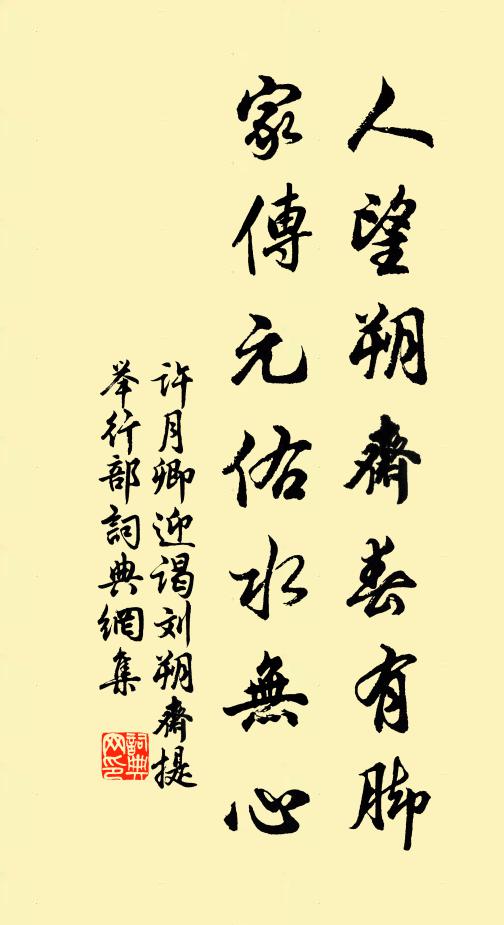 人望朔齋春有脚
家傳元佑水無心
许月卿迎谒刘朔齋提
举行部詞典網集
詞典
网印